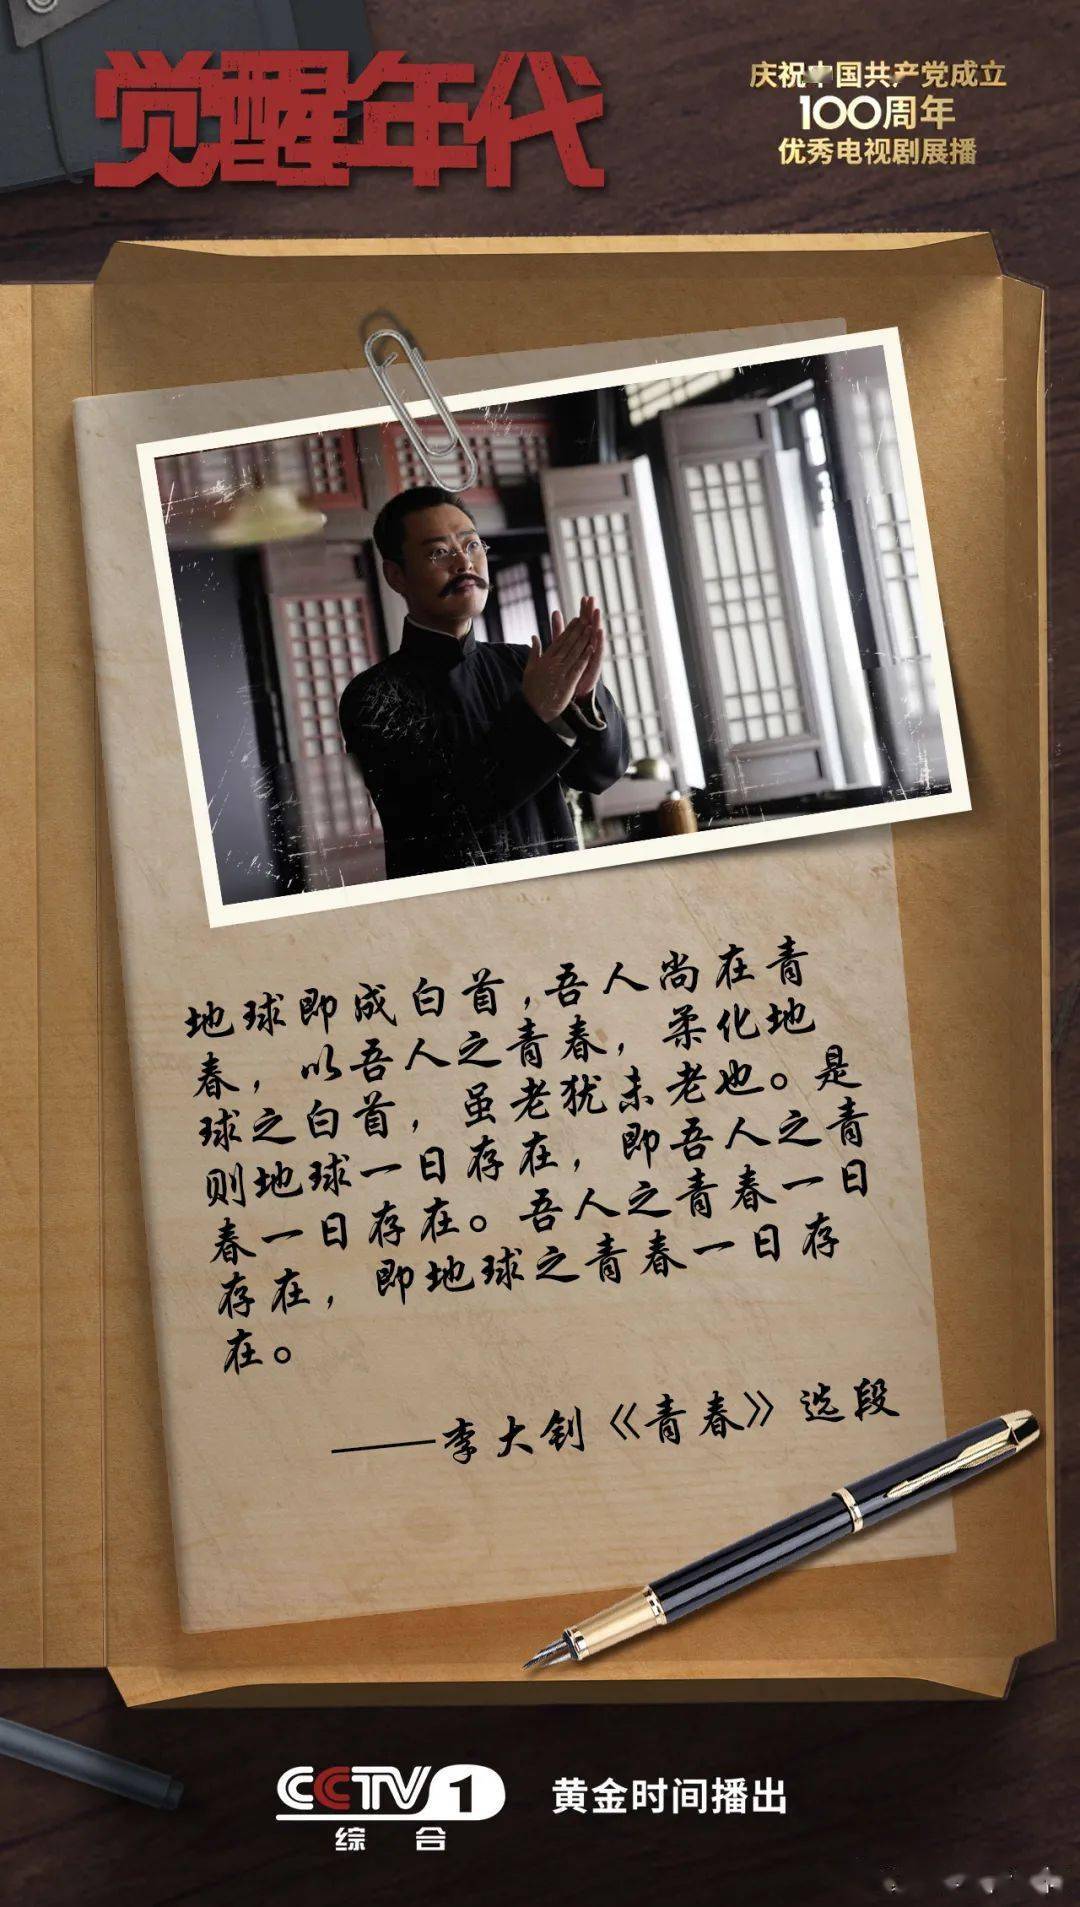 觉醒年代
庆祝中国共产党成立
100周年
优秀电视剧展播
地球即成白首,吾人尚在青
春，以吾人之青春，柔化地
球之白首，虽老犹未老也。是
则地球一日存在，即吾人之青
春一日存在。吾人之青春一日
存在，即地球之青春一日存
在。
——李大钊《青春》选段
CCTV 1
综合
黄金时间播出